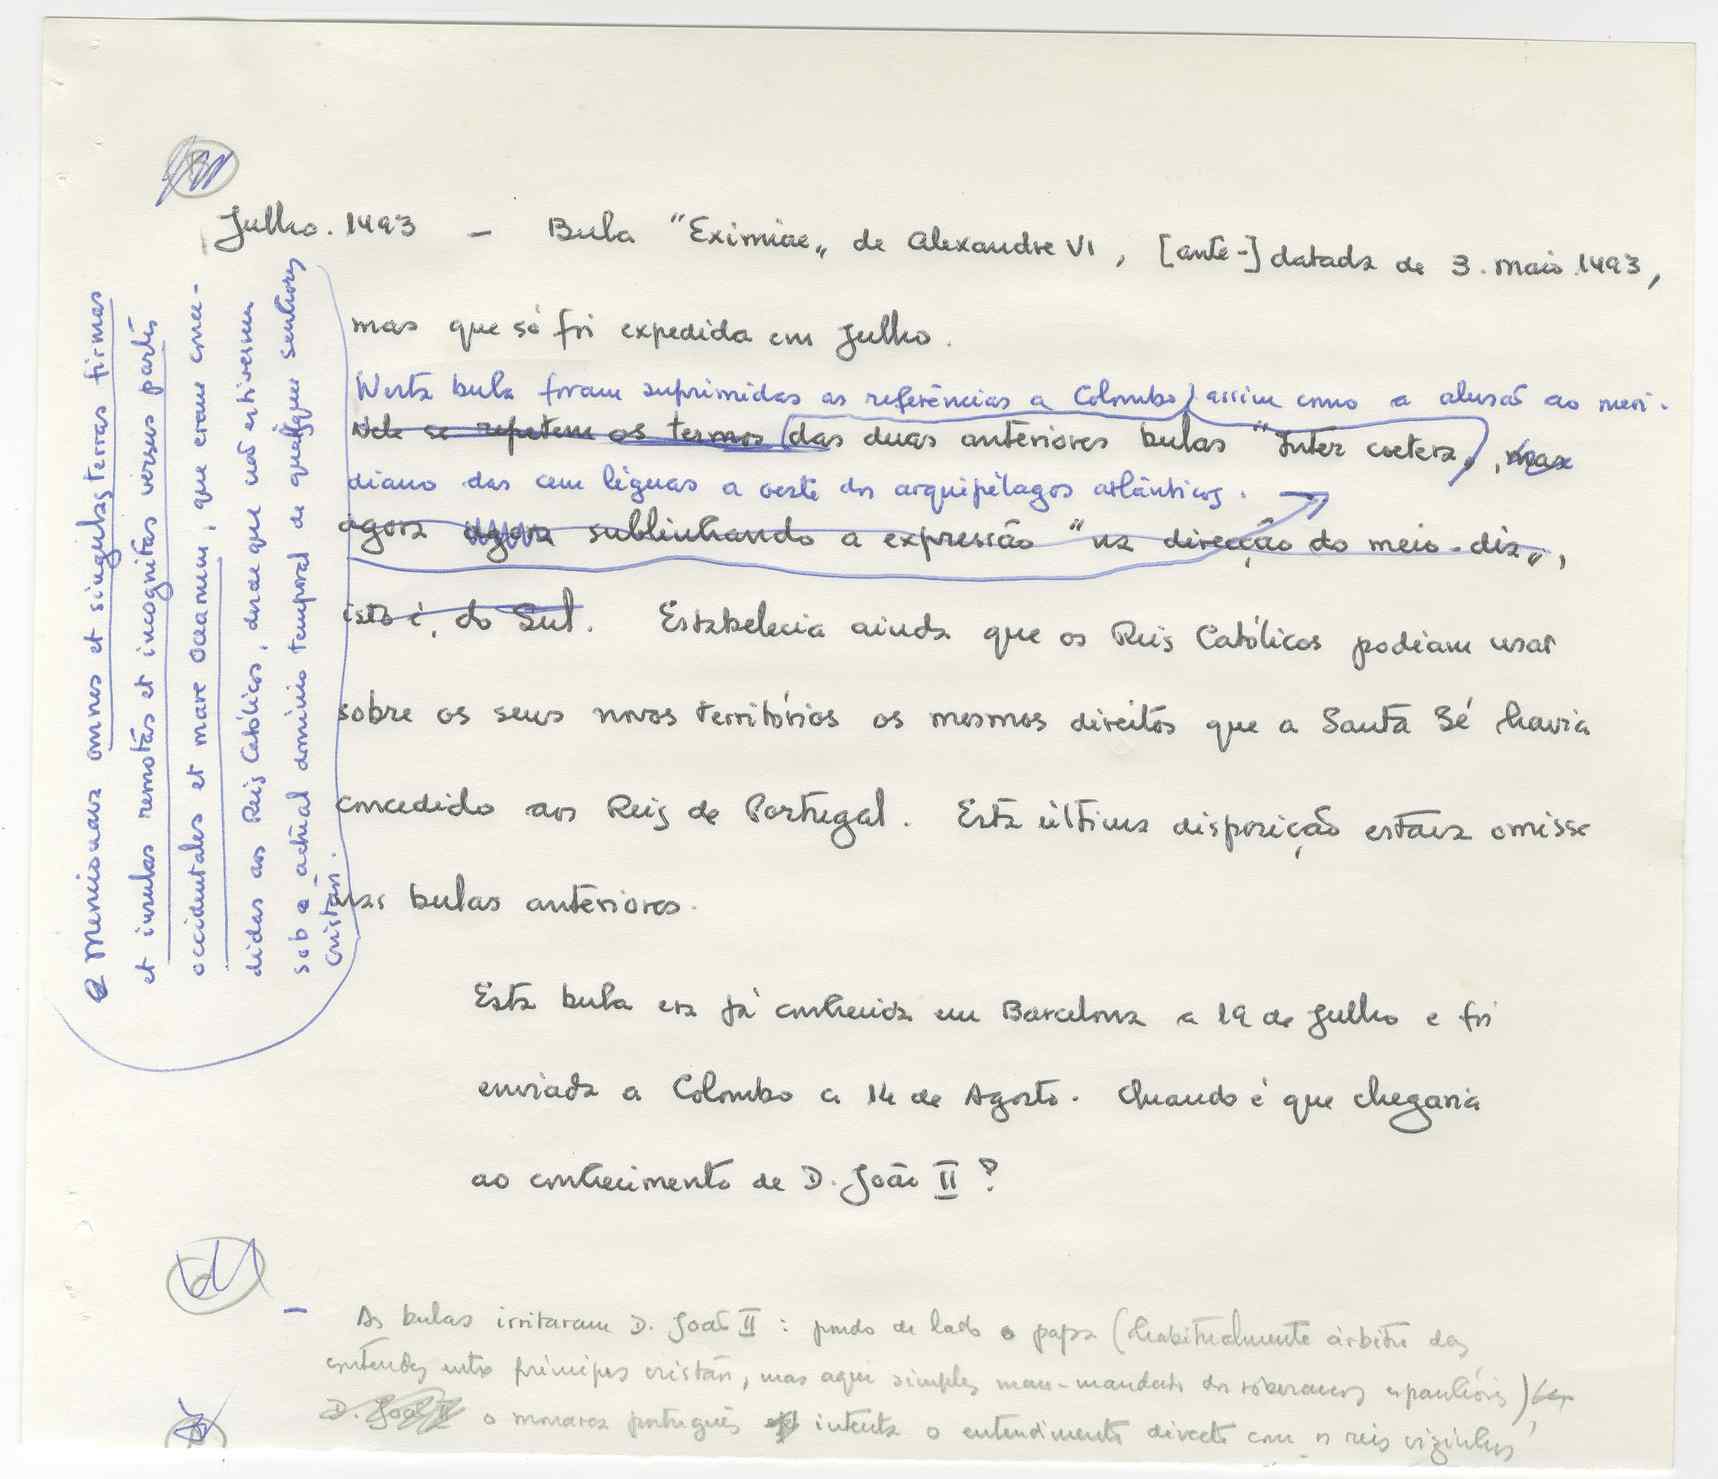 Julho. 1493 – Bula "Eximiae" de Alexandre VI, [ante-]datada de 3. maio 1493,
mas que só foi expedida em Julho.
Nesta bula foram suprimidas as referências a Colombo, assim como a alusão ao meri-
Nele se repetem os termos das duas anteriores bulas "Inter coetera", mas
diano das cem léguas a oeste dos arquipélagos atlânticos.
agora agora sublinhando a expressão "na direcção do meio-dia",
isto é, do Sul. Estabelecia ainda que os Reis Católicos podiam usar
sobre os seus novos territórios os mesmos direitos que a Santa Sé havia
concedido aos Reis de Portugal. Esta última disposição estava omissa
nas bulas anteriores.
Mencionava omnes et singulas terras firmas
et insulas remotas et incognitas versus partes
occidentales et mare Oceanum, que eram conce-
didas aos Reis Católicos, desde que não estivessem
sob o actual domínio temporal de quaisquer senhores
cristãos.
Esta bula era já conhecida em Barcelona a 19 de Julho e foi
enviada a Colombo a 14 de Agosto. Quando é que chegaria
ao conhecimento de D. João II?
As bulas irritaram D. João II: pondo de lado o papa (habitualmente árbitro das
contendas entre príncipes cristãos, mas aqui simples mau-mandado dos soberanos espanhóis)
D. João II o monarca português intenta o entendimento directo com os reis vizinhos